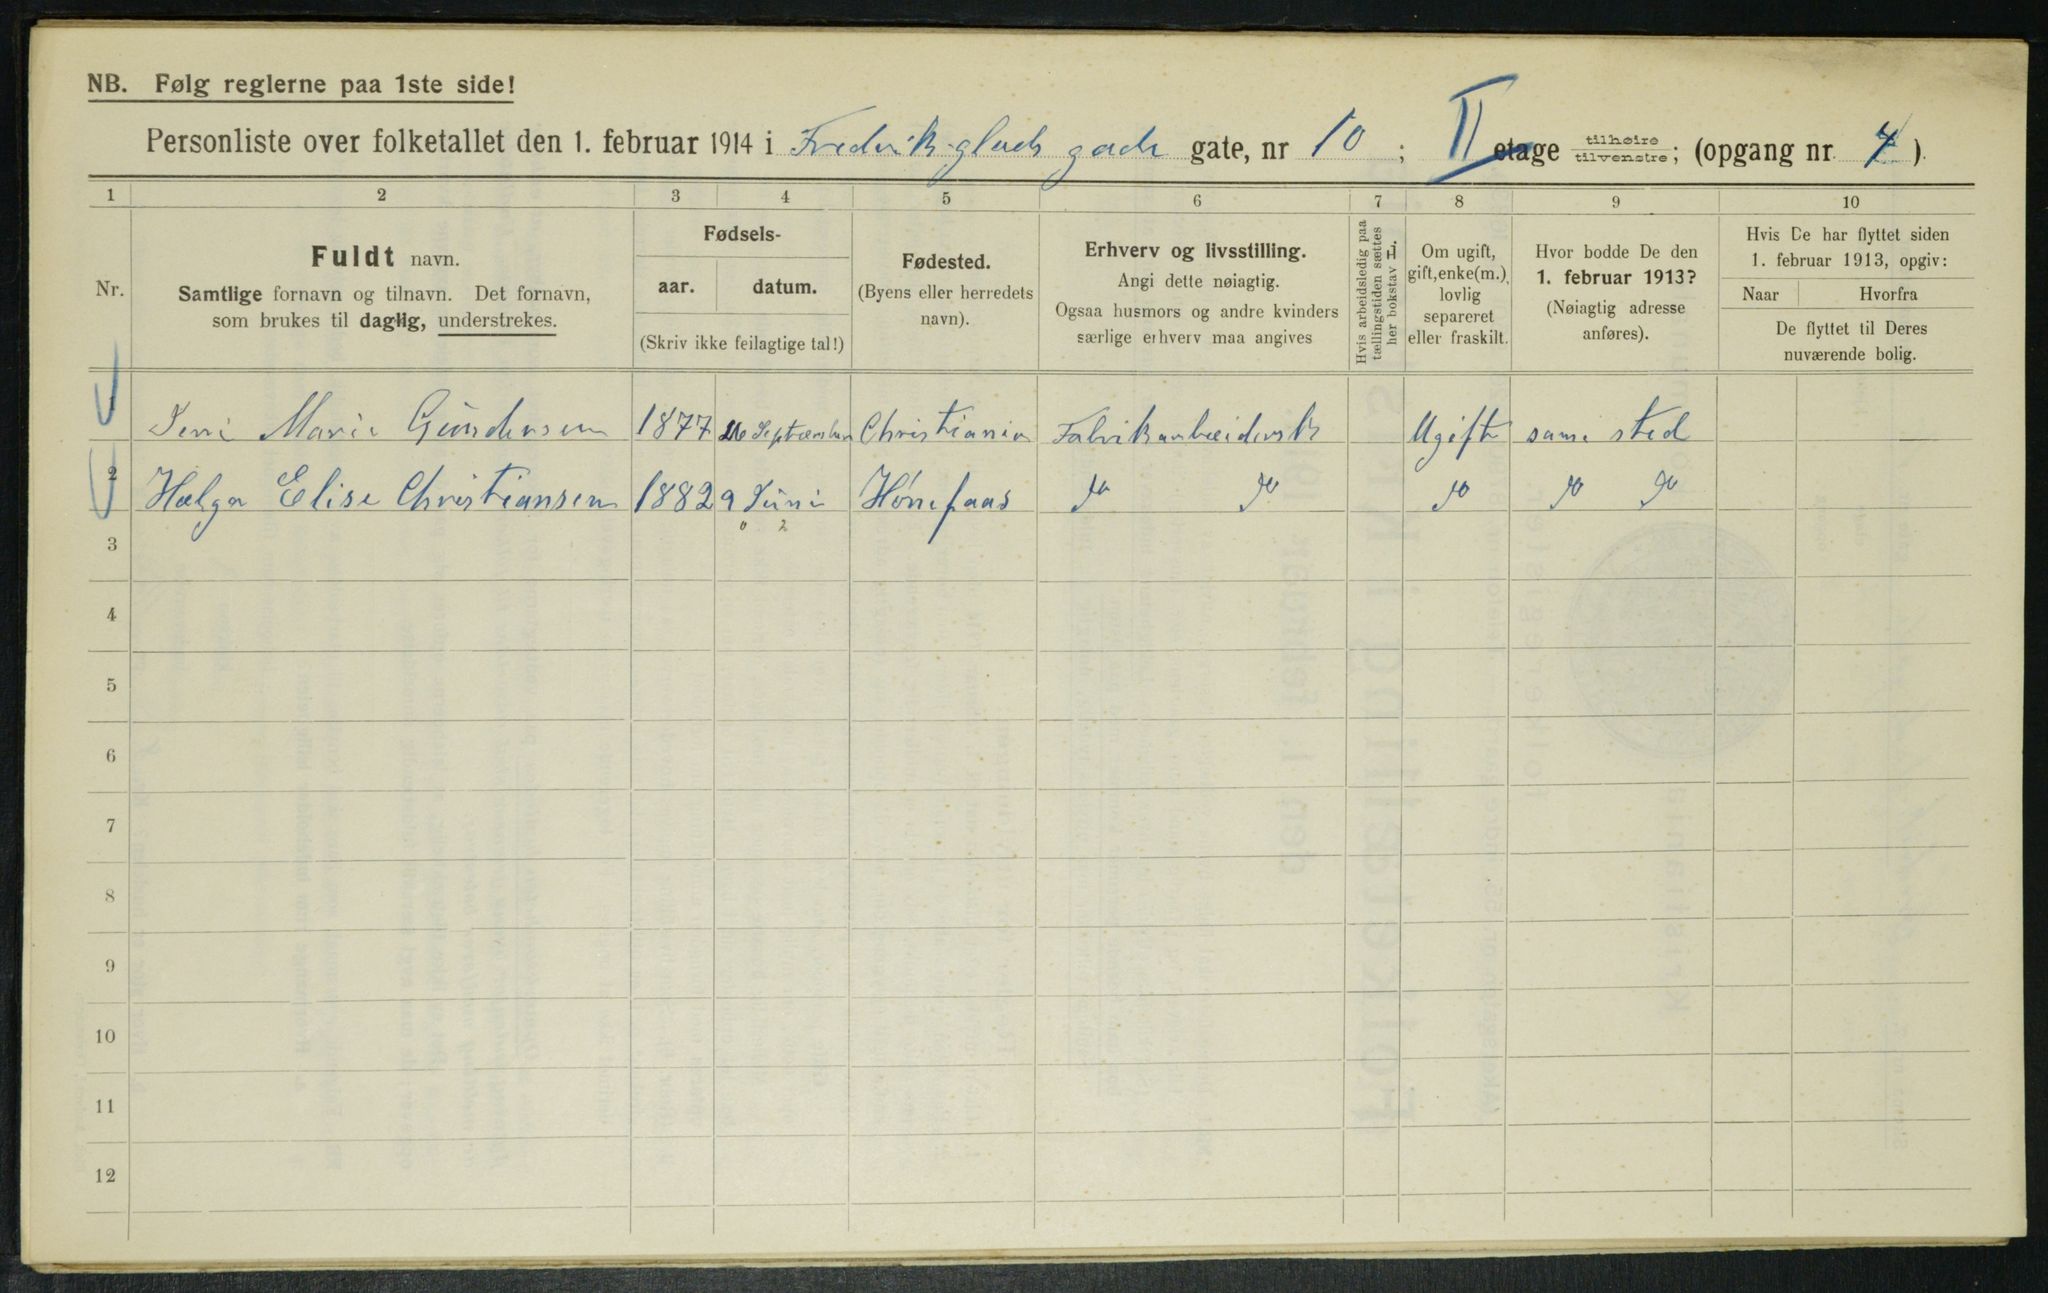 NB. Følg reglerne paa 1ste side!
Personliste over folketallet den 1. februar 1914 i Fredrik glads gade gate, nr 10; II etage tilhøire tilvenstre; (opgang nr. 4).
1 2 3 4 5 6 7 8 9 10
Nr.
Fuldt navn.
Samtlige fornavn og tilnavn. Det fornavn,
som brukes til daglig, understrekes.
Fødsels-
aar. datum.
(Skriv ikke feilagtige tal!)
Fødested.
(Byens eller herredets
navn).
Erhverv og livsstilling.
Angi dette nøiagtig.
Ogsaa husmors og andre kvinders
særlige erhverv maa angives
Hvis arbeidsledig paa
tællingstiden sættes
her bokstav L.
Om ugift,
gift, enke(m.),
lovlig
separeret
eller fraskilt.
Hvor bodde De den
1. februar 1913?
(Nøiagtig adresse
anføres).
Hvis De har flyttet siden
1. februar 1913, opgiv:
Naar Hvorfra
De flyttet til Deres
nuværende bolig.
Marie Gundersen 1877 26 September Christiania Fabrikarbeidersk Ugift same sted
2 Helga Elise Christiansen 1882 9 Juni Hønefaas do do do do do
3
4
5
6
7
8
9
10
11
12